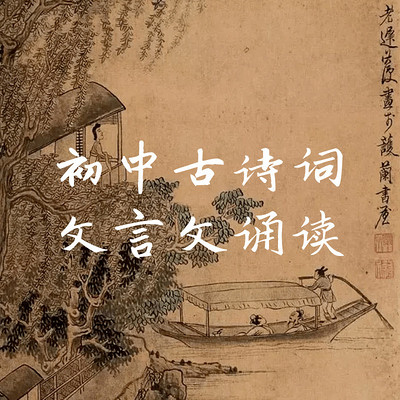 初中古诗词
文言文诵读
老遲蓮畫于護蘭書屋